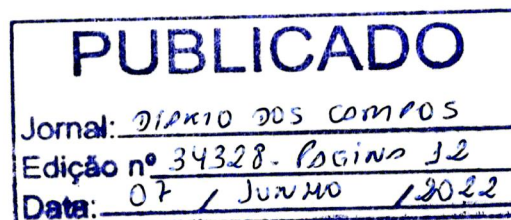 PUBLICADO
Jornal: DIARIO DOS CAMPOS
Edição nº 34328 - PAGINA 12
Data: 07 / JUNHO / 2022